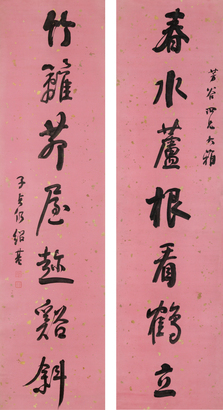 谷四兄大雅
春水蘆根看鶴立
竹籬茆屋趁谿斜
子貞何紹基